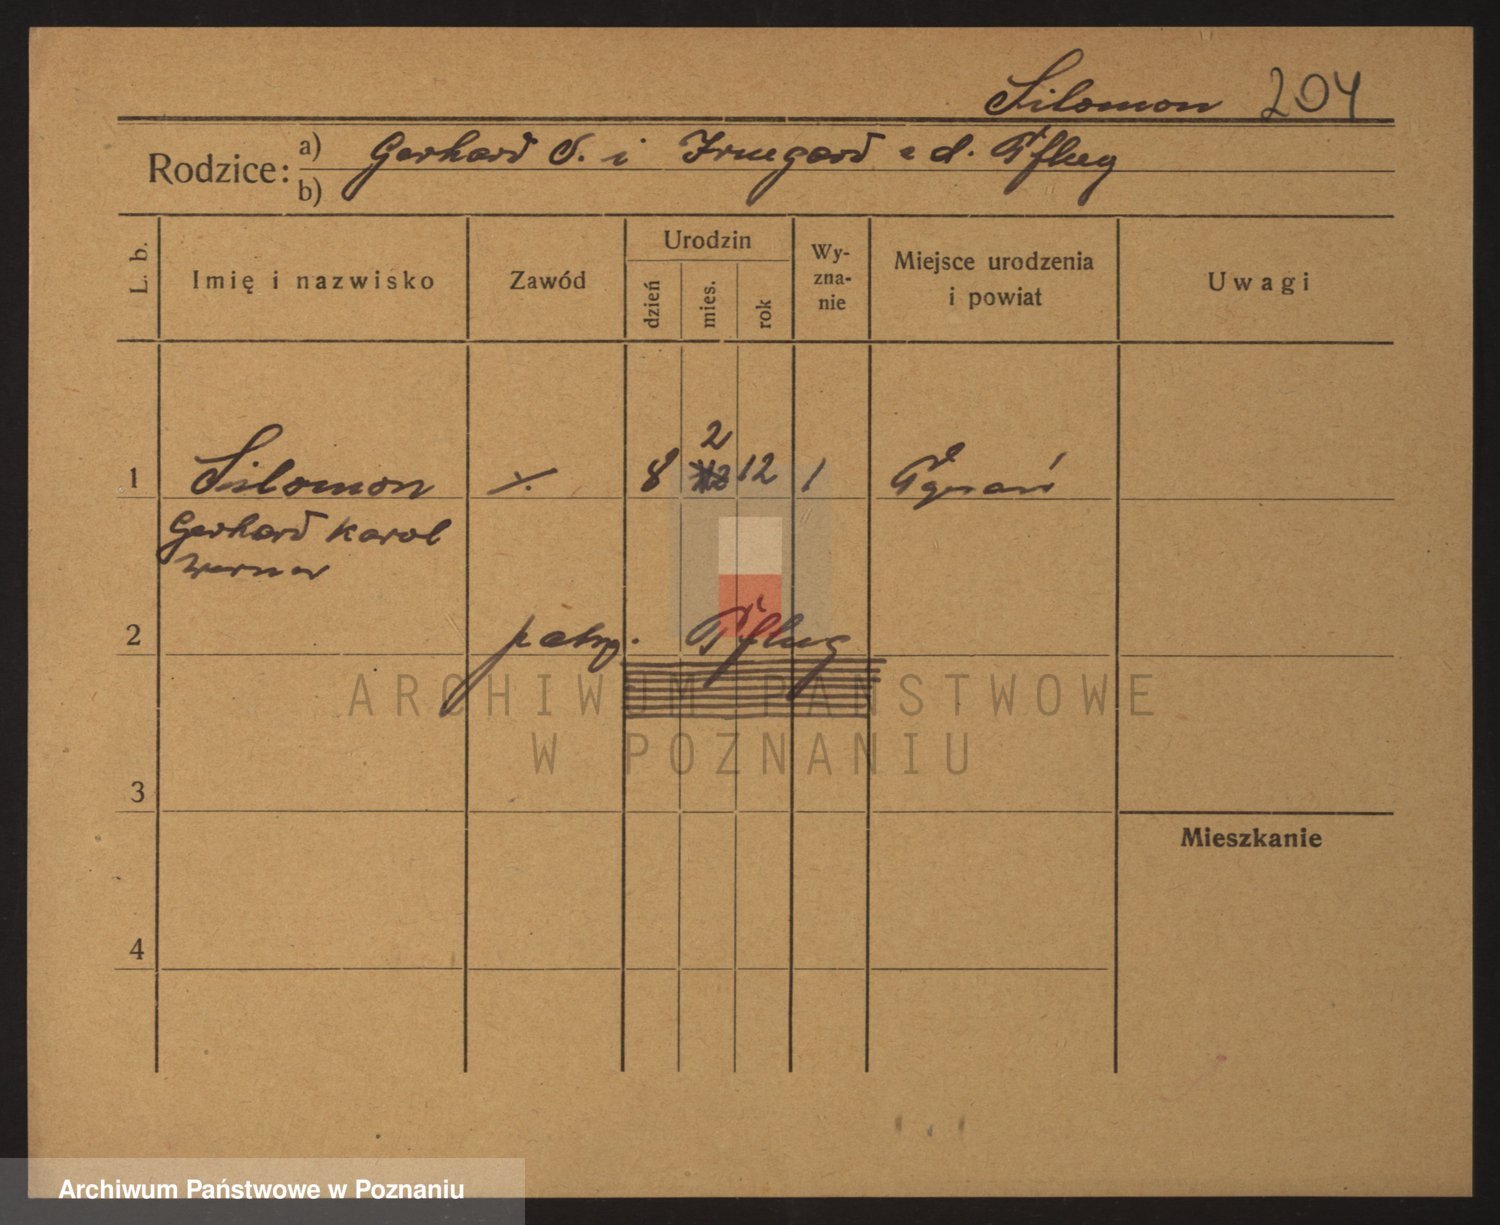 Silomon 204
Rodzice: a) Gerhard S. i Irmgard z d. Pflug
b)
L. b. Imię i nazwisko Zawód Urodzin dzień mies. rok Wy-zna-nie Miejsce urodzenia i powiat Uwagi
2
1 Silomon ·/. 8 12 1 Poznań
Gerhard Karol
Werner
2 patrz. Pflug
ARCHIWUM PAŃSTWOWE
W POZNANIU
3
Mieszkanie
4
Archiwum Państwowe w Poznaniu